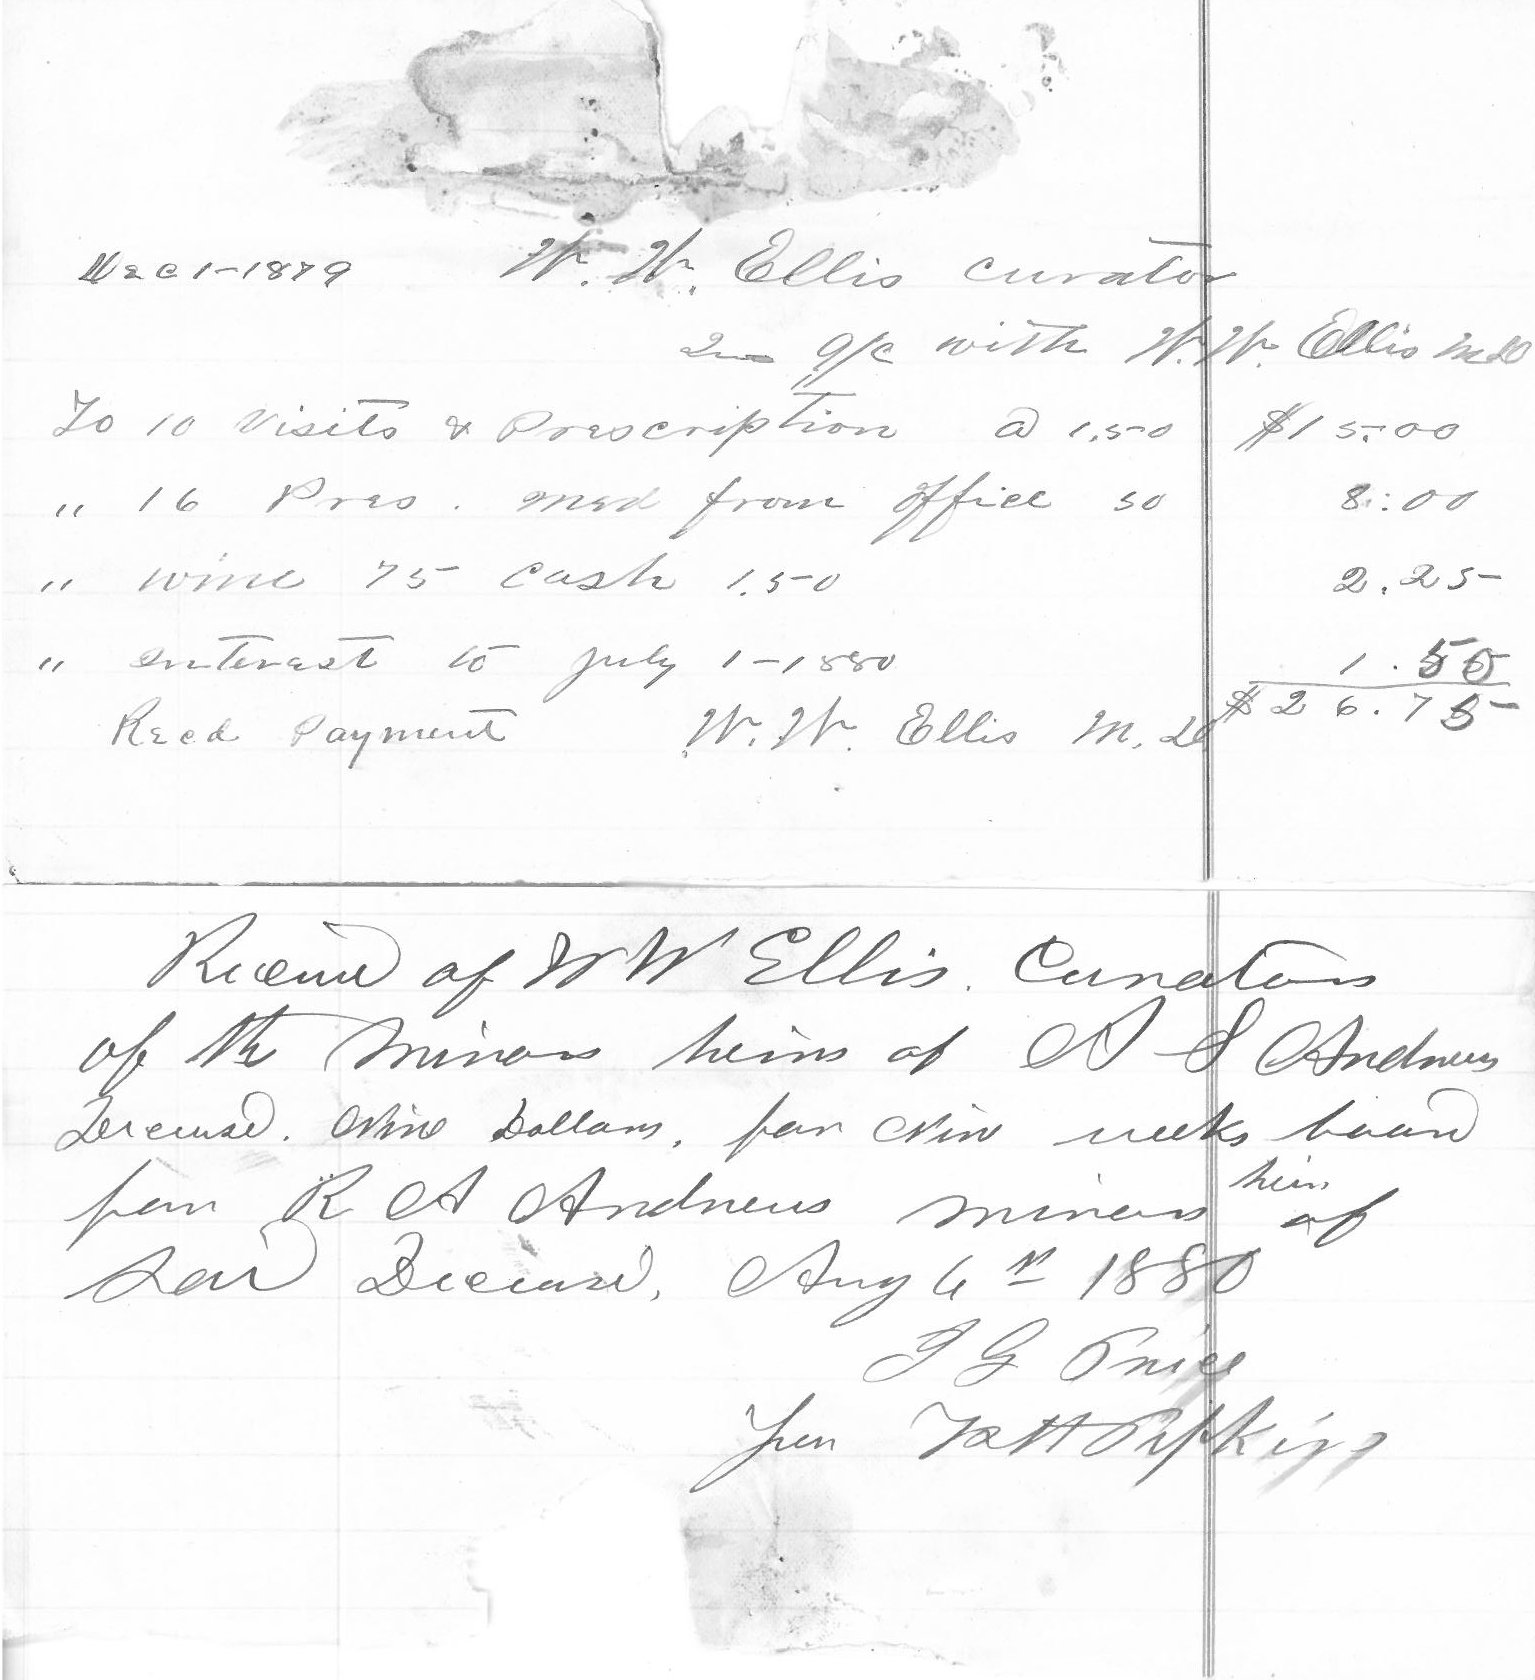 Dec 1-1879 W. W. Ellis curator
In a/c with W. W. Ellis M D
To 10 Visits & Prescription @ 1.50 $15.00
" 16 Pres. med from office 50 8:00
" wine 75 cash 1.50 2.25
" interest to July 1-1880 1.50
$26.75
Recd Payment W. W. Ellis M. D
Received of W W Ellis. Curator
of the minor heirs of A S Andrews
Deceased. Nine Dollars, for Nine weeks board
for R A Andrews minor heir of
Said Deceased, Aug 6th 1880
T G Price
Per